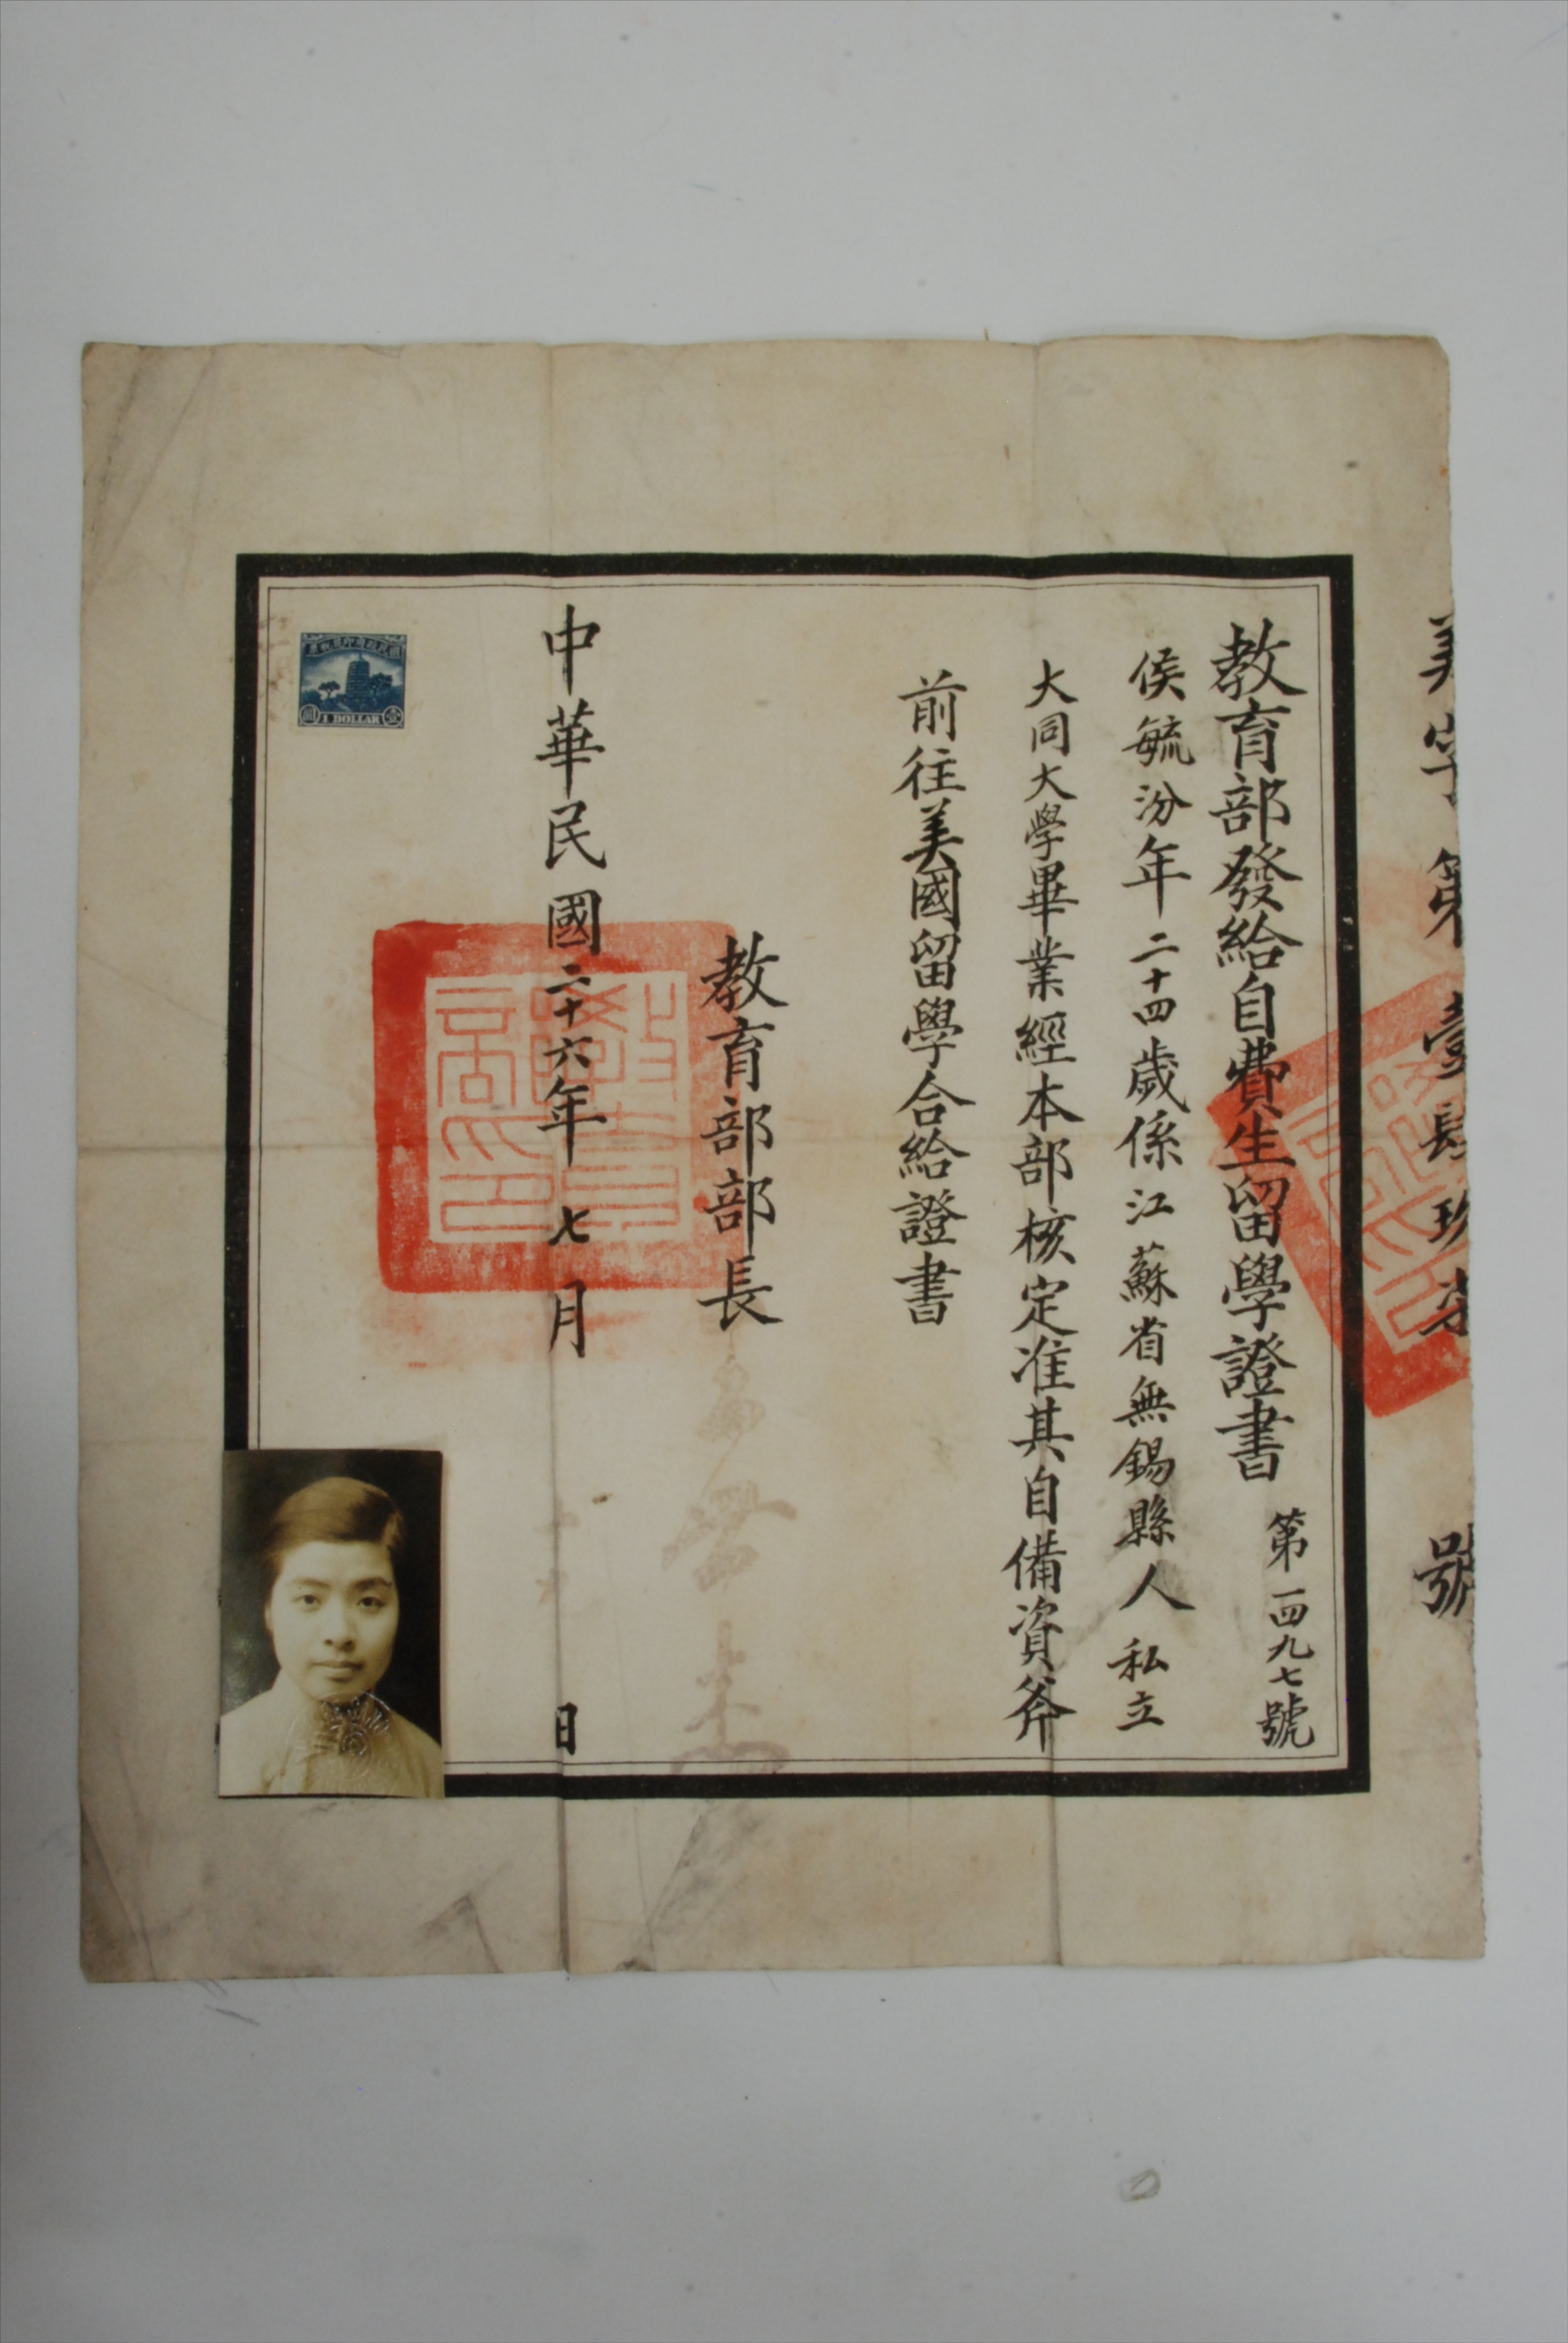 美字第壹肆玖柒號
教育部發給自費生留學證書
第一四九七號
侯毓汾年二十四歲係江蘇省無錫縣人私立
大同大學畢業經本部核定准其自備資斧
前往美國留學合給證書
教育部部長
中華民國二十六年七月 日
國民政府印花稅票
壹圓
1 DOLLAR
教育部印